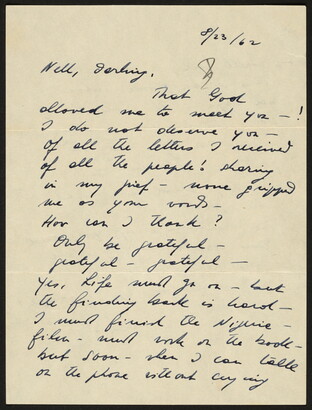 8/23/62
Nell, Darling,
That God
allowed me to meet you — !
I do not deserve you —
of all the letters I received
of all the people's sharing
in my grief — none gripped
me as your words —
How can I thank?
Only be grateful —
grateful — grateful —
Yes, Life must go on — but
the finding back is hard —
I must finish the
film — must work on the book —
but soon — when I can talk
on the phone without crying